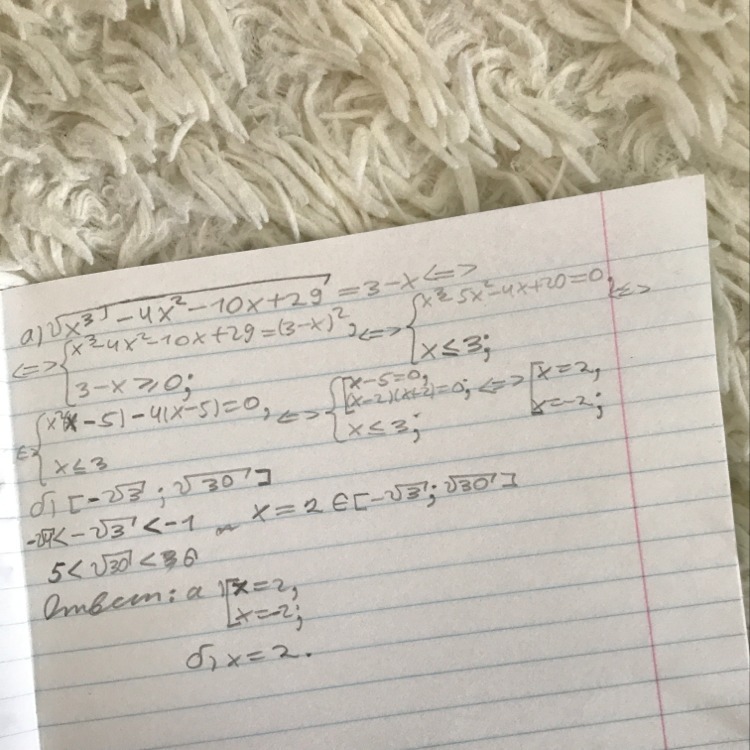 а) √(x³ - 4x² - 10x + 29) = 3 - x <=>
<=> { x³ - 4x² - 10x + 29 = (3-x)², 3 - x ⩾ 0; <=> { x³ - 5x² - 4x + 20 = 0, x ≤ 3; <=>
<=> { x²(x - 5) - 4(x - 5) = 0, x ≤ 3 <=> { [ x - 5 = 0, (x - 2)(x + 2) = 0; x ≤ 3; <=> [ x = 2, x = -2;
б) [-√3; √30]
< -√3 < -1 x = 2 ∈ [-√3; √30]
5 < √30 < 6
Ответ: а) [ x = 2, x = -2;
б) x = 2.